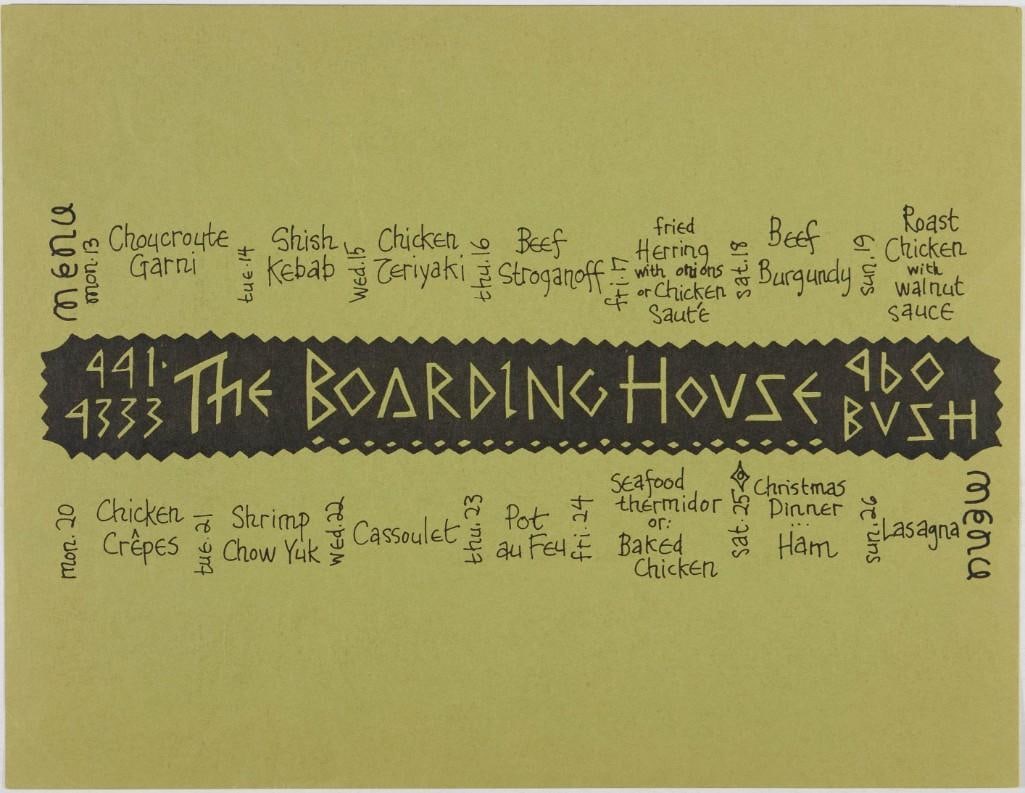 menu
mon. 13
Choucroute
Garni
tue. 14
Shish
Kebab
Wed. 15
Chicken
Teriyaki
thu. 16
Beef
Stroganoff
fri. 17
fried
Herring
with onions
or Chicken
Sauté
sat. 18
Beef
Burgundy
sun. 19
Roast
Chicken
with
walnut
sauce
441·
4333
The Boarding House
960
BUSH
mon. 20
Chicken
Crêpes
tue. 21
Shrimp
Chow Yuk
wed. 22
Cassoulet
thu. 23
Pot
au Feu
fri. 24
Seafood
thermidor
or:
Baked
Chicken
sat. 25
Christmas
Dinner
...
Ham
sun. 26
Lasagna
menu